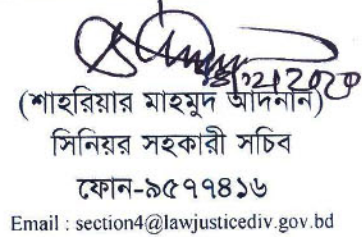 (শাহরিয়ার মাহমুদ আদনান)
সিনিয়র সহকারী সচিব
ফোন-৯৫৭৭৪১৬
Email : section4@lawjusticediv.gov.bd